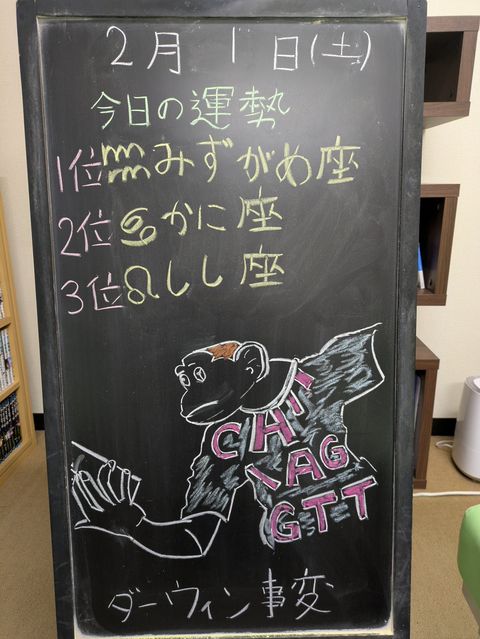 2月1日(土)
今日の運勢
1位♒みずがめ座
2位♋かに座
3位♌しし座
CHI
AG
GTT
ダーウィン事変